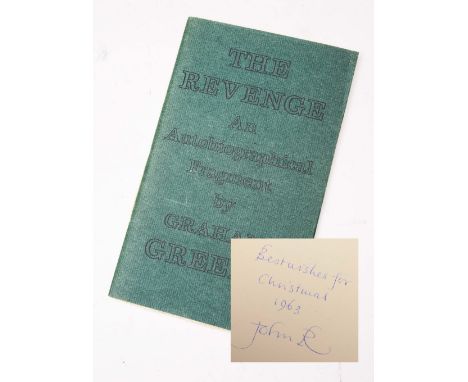 THE
REVENGE
An
Autobiographical
Fragment
by
GRAHA
GREE
Best wishes for
Christmas
1963
John R